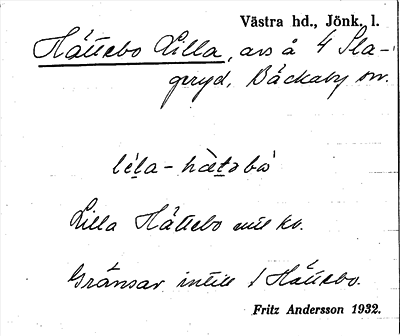 Västra hd., Jönk. l.
Hättebo Lilla, avs å 4 Sla-
geryd, Bäckaby sn.
lı́la - hæ̀təbó
Lilla Hättebo enl kv.
Gränsar intill 1 Hättebo.
Fritz Andersson 1932.